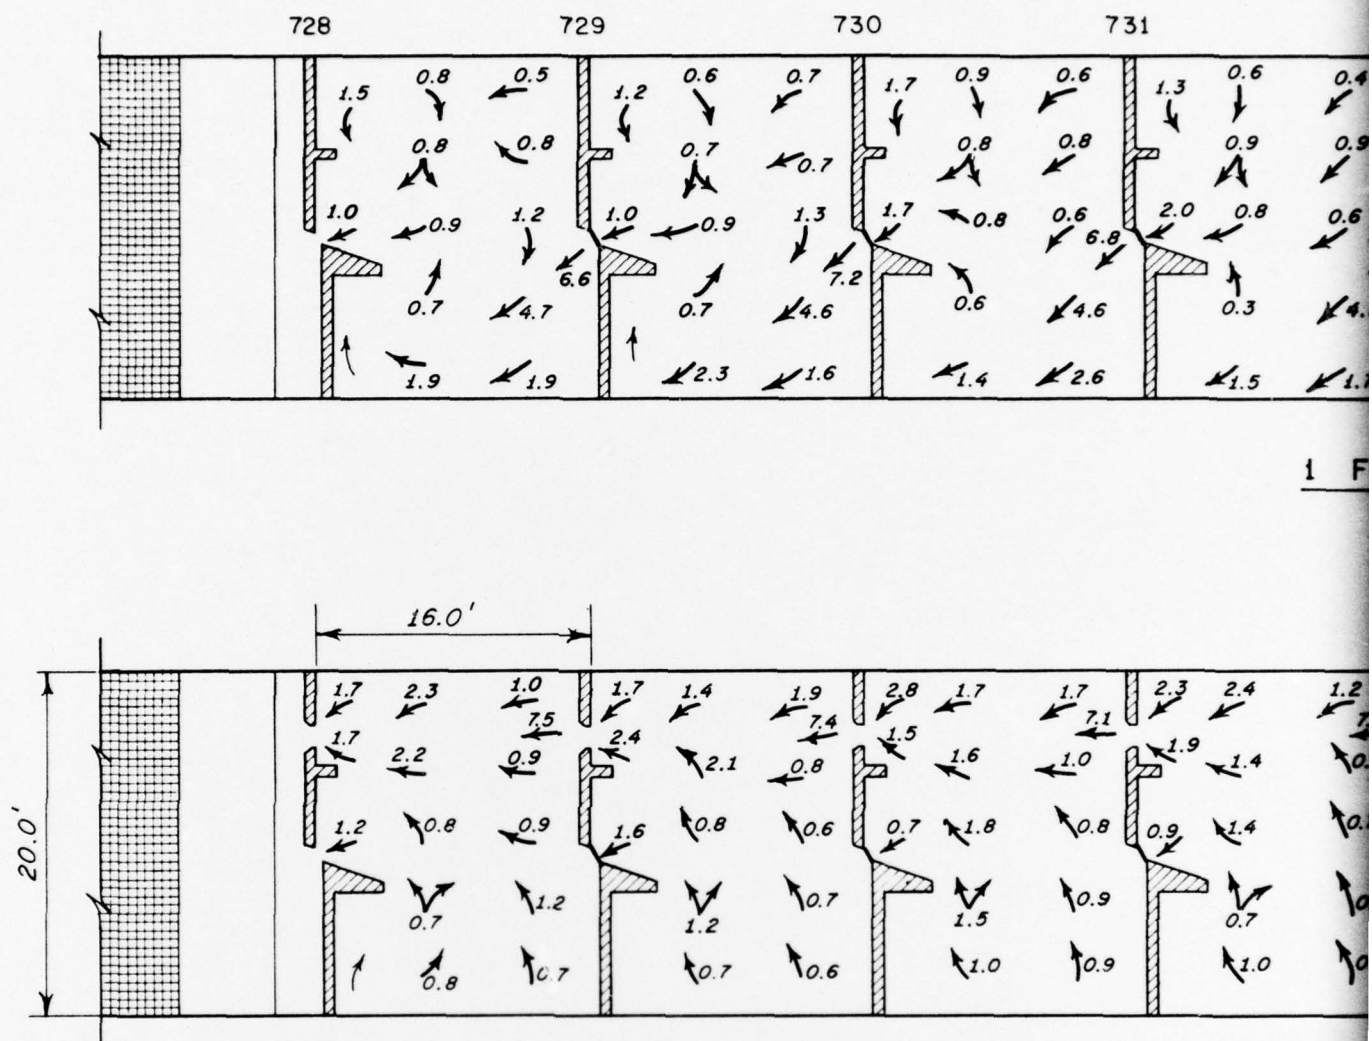 728 729 730 731
0.8 0.5 0.6 0.7 0.9 0.6 0.6 0.4
1.5 1.2 1.7 1.3
0.8 0.8 0.7 0.7 0.8 0.8 0.9 0.9
1.0 0.9 1.2 1.0 0.9 1.3 1.7 0.8 0.6 2.0 0.8 0.6
6.6 7.2 6.8
0.7 4.7 0.7 4.6 0.6 4.6 0.3
1.9 1.9 2.3 1.6 1.4 2.6 1.5
1 F
16.0'
20.0'
1.7 2.3 1.0 1.7 1.4 1.9 2.8 1.7 1.7 2.3 2.4 1.2
7.5 7.4 7.1
1.7 2.2 0.9 2.4 2.1 0.8 1.5 1.6 1.0 1.9 1.4
1.2 0.8 0.9 1.6 0.8 0.6 0.7 1.8 0.8 0.9 1.4
0.7 1.2 1.2 0.7 1.5 0.9 0.7
0.8 0.7 0.7 0.6 1.0 0.9 1.0